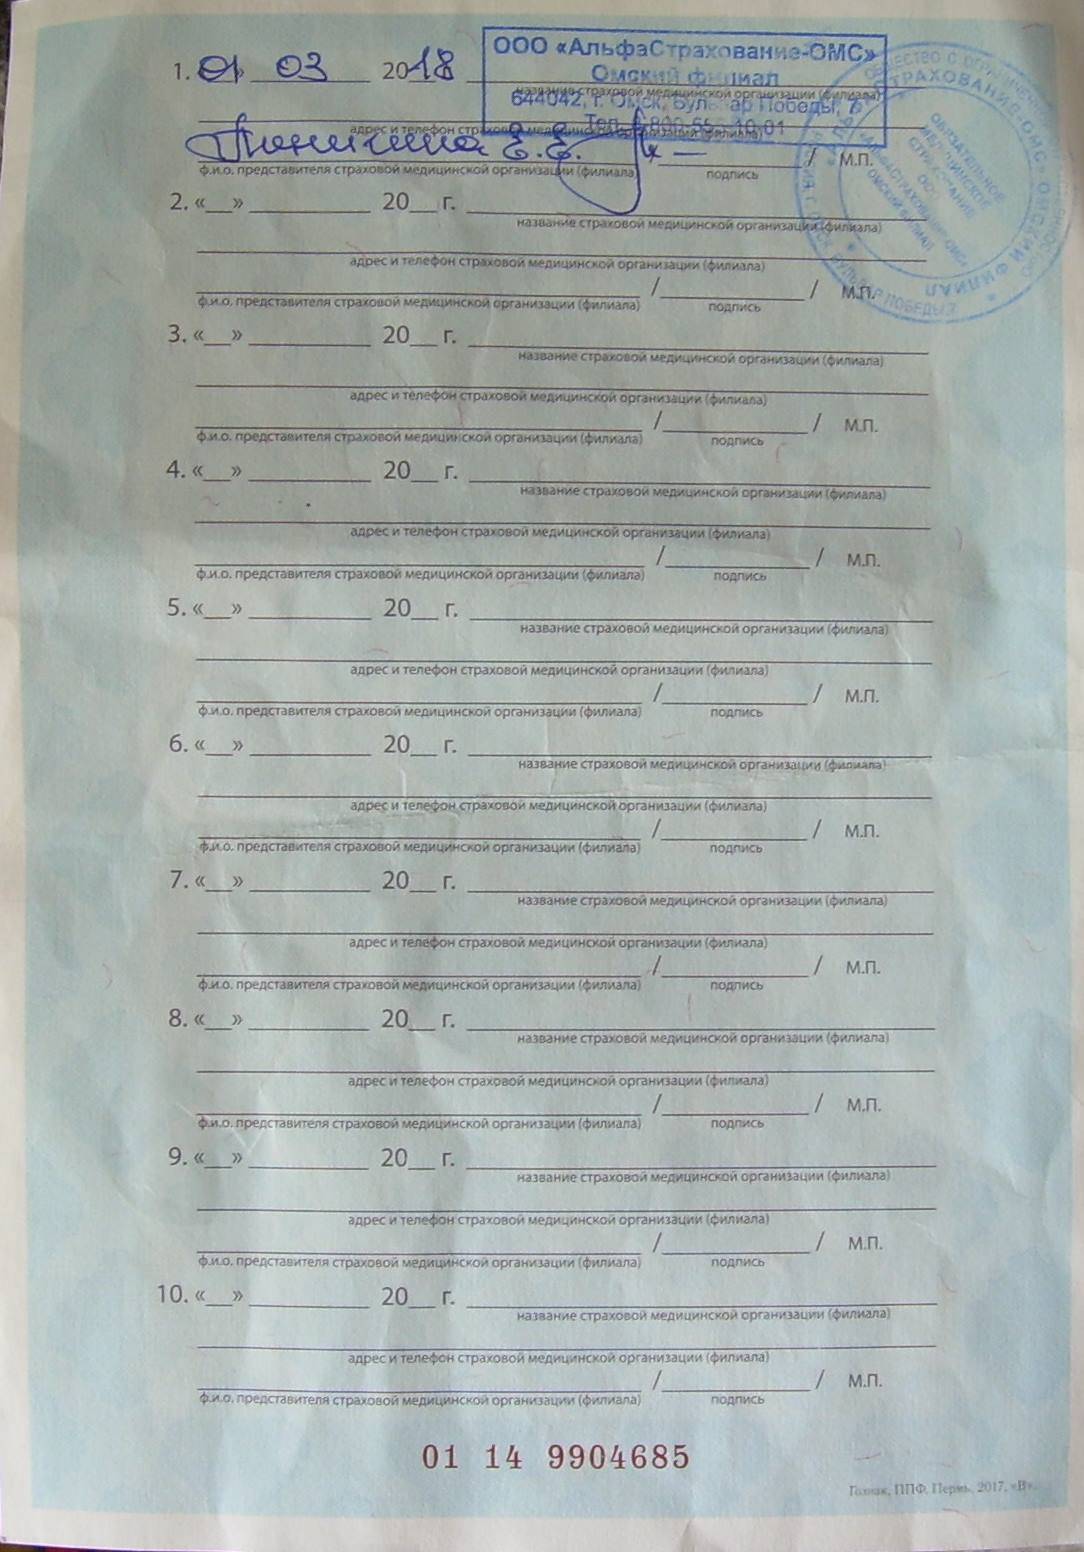 ООО «АльфаСтрахование-ОМС»
Омский филиал
644042, г. Омск, Бульвар Победы, 7
1. «01» 03 2018
название страховой медицинской организации (филиала)
адрес и телефон страховой медицинской организации (филиала)
Е.Е. / М.П.
ф.и.о. представителя страховой медицинской организации (филиала) подпись
2. «__» ________ 20__ г.
название страховой медицинской организации (филиала)
адрес и телефон страховой медицинской организации (филиала)
/ ________ / М.П.
ф.и.о. представителя страховой медицинской организации (филиала) подпись
3. «__» ________ 20__ г.
название страховой медицинской организации (филиала)
адрес и телефон страховой медицинской организации (филиала)
/ ________ / М.П.
ф.и.о. представителя страховой медицинской организации (филиала) подпись
4. «__» ________ 20__ г.
название страховой медицинской организации (филиала)
адрес и телефон страховой медицинской организации (филиала)
/ ________ / М.П.
ф.и.о. представителя страховой медицинской организации (филиала) подпись
5. «__» ________ 20__ г.
название страховой медицинской организации (филиала)
адрес и телефон страховой медицинской организации (филиала)
/ ________ / М.П.
ф.и.о. представителя страховой медицинской организации (филиала) подпись
6. «__» ________ 20__ г.
название страховой медицинской организации (филиала)
адрес и телефон страховой медицинской организации (филиала)
/ ________ / М.П.
ф.и.о. представителя страховой медицинской организации (филиала) подпись
7. «__» ________ 20__ г.
название страховой медицинской организации (филиала)
адрес и телефон страховой медицинской организации (филиала)
/ ________ / М.П.
ф.и.о. представителя страховой медицинской организации (филиала) подпись
8. «__» ________ 20__ г.
название страховой медицинской организации (филиала)
адрес и телефон страховой медицинской организации (филиала)
/ ________ / М.П.
ф.и.о. представителя страховой медицинской организации (филиала) подпись
9. «__» ________ 20__ г.
название страховой медицинской организации (филиала)
адрес и телефон страховой медицинской организации (филиала)
/ ________ / М.П.
ф.и.о. представителя страховой медицинской организации (филиала) подпись
10. «__» ________ 20__ г.
название страховой медицинской организации (филиала)
адрес и телефон страховой медицинской организации (филиала)
/ ________ / М.П.
ф.и.о. представителя страховой медицинской организации (филиала) подпись
01 14 9904685
Гознак, ППФ, Пермь, 2017, «В».